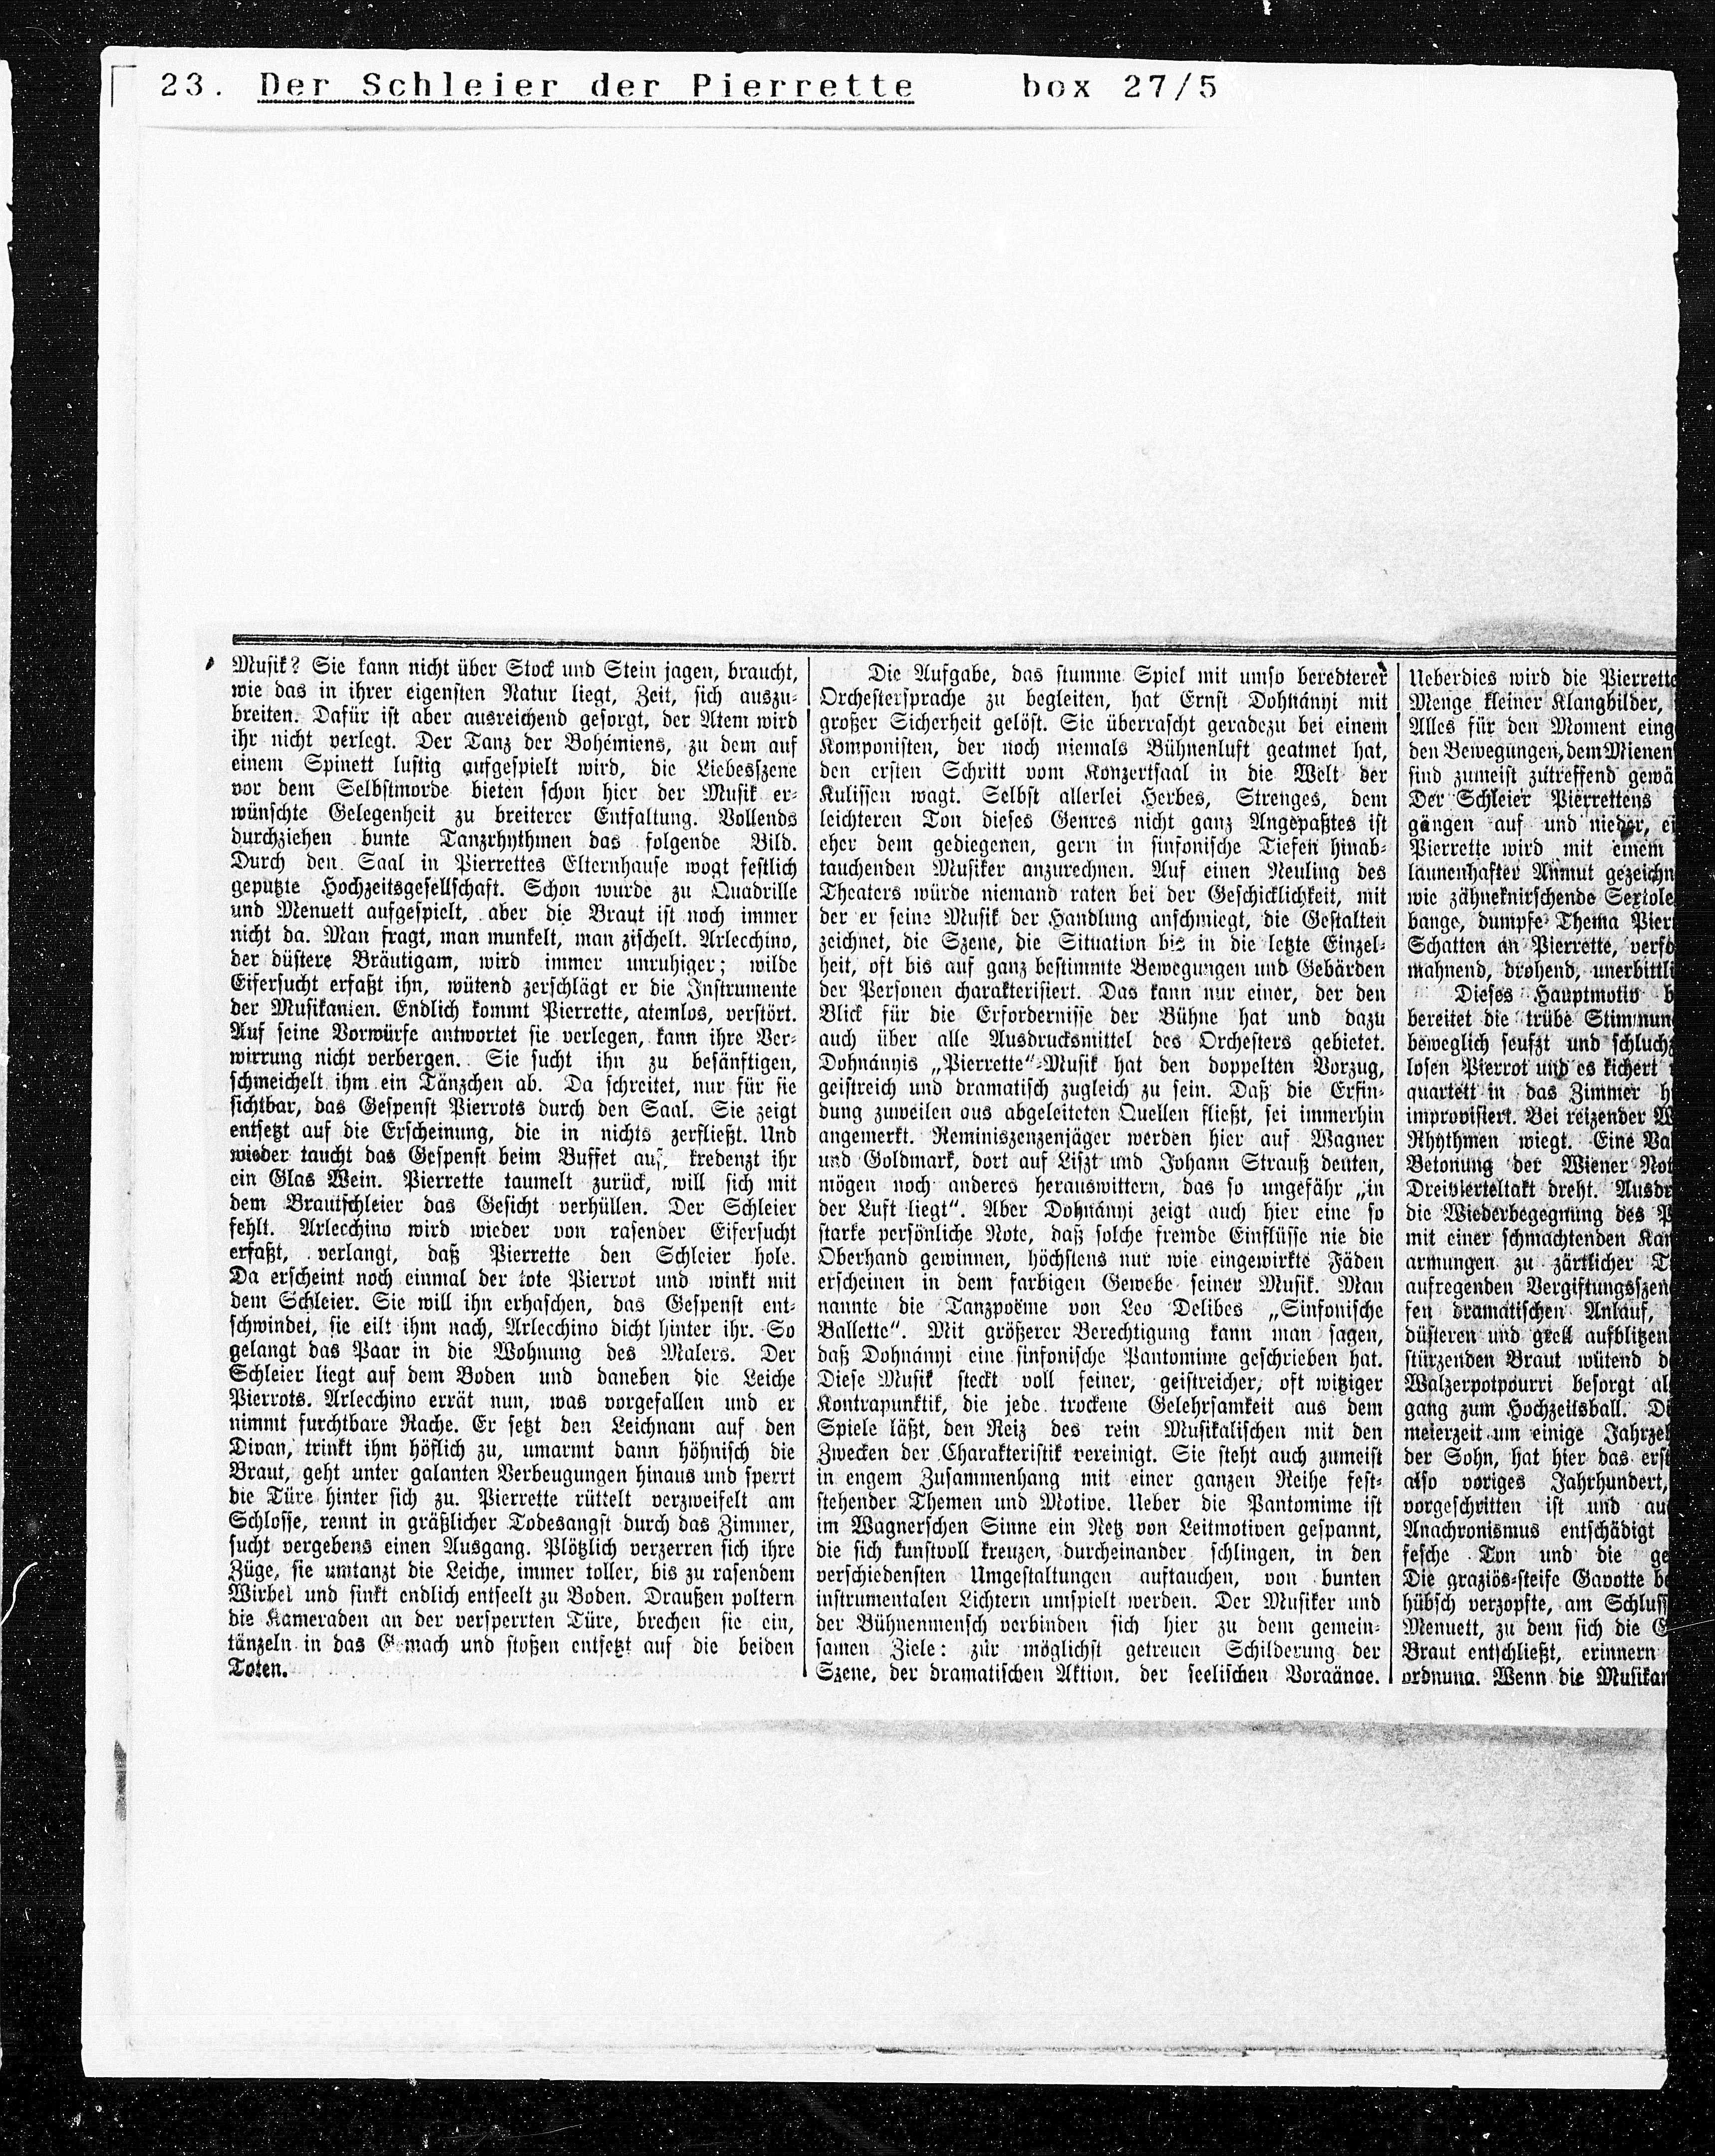 23. Der Schleier der Pierrette box 27/5
Musik? Sie kann nicht über Stock und Stein jagen, braucht,
wie das in ihrer eigensten Natur liegt, Zeit, sich auszu-
breiten. Dafür ist aber ausreichend gesorgt, der Atem wird
ihr nicht verlegt. Der Tanz der Bohémiens, zu dem auf
einem Spinett lustig aufgespielt wird, die Liebesszene
vor dem Selbstmorde bieten schon hier der Musik er-
wünschte Gelegenheit zu breiterer Entfaltung. Vollends
durchziehen bunte Tanzrhythmen das folgende Bild.
Durch den Saal in Pierrettes Elternhause wogt festlich
geputzte Hochzeitsgesellschaft. Schon wurde zu Quadrille
und Menuett aufgespielt, aber die Braut ist noch immer
nicht da. Man fragt, man munkelt, man zischelt. Arlecchino,
der düstere Bräutigam, wird immer unruhiger; wilde
Eifersucht erfaßt ihn, wütend zerschlägt er die Instrumente
der Musikanten. Endlich kommt Pierrette, atemlos, verstört.
Auf seine Vorwürfe antwortet sie verlegen, kann ihre Ver-
wirrung nicht verbergen. Sie sucht ihn zu besänftigen,
schmeichelt ihm ein Tänzchen ab. Da schreitet, nur für sie
sichtbar, das Gespenst Pierrots durch den Saal. Sie zeigt
entsetzt auf die Erscheinung, die in nichts zerfließt. Und
wieder taucht das Gespenst beim Buffet auf, kredenzt ihr
ein Glas Wein. Pierrette taumelt zurück, will sich mit
dem Brautschleier das Gesicht verhüllen. Der Schleier
fehlt. Arlecchino wird wieder von rasender Eifersucht
erfaßt, verlangt, daß Pierrette den Schleier hole.
Da erscheint noch einmal der tote Pierrot und winkt mit
dem Schleier. Sie will ihn erhaschen, das Gespenst ent-
schwindet, sie eilt ihm nach, Arlecchino dicht hinter ihr. So
gelangt das Paar in die Wohnung des Malers. Der
Schleier liegt auf dem Boden und daneben die Leiche
Pierrots. Arlecchino errät nun, was vorgefallen und er
nimmt furchtbare Rache. Er setzt den Leichnam auf den
Divan, trinkt ihm höflich zu, umarmt dann höhnisch die
Braut, geht unter galanten Verbeugungen hinaus und sperrt
die Türe hinter sich zu. Pierrette rüttelt verzweifelt am
Schlosse, rennt in gräßlicher Todesangst durch das Zimmer,
sucht vergebens einen Ausgang. Plötzlich verzerren sich ihre
Züge, sie umtanzt die Leiche, immer toller, bis zu rasendem
Wirbel und sinkt endlich entseelt zu Boden. Draußen poltern
die Kameraden an der versperrten Türe, brechen sie ein,
tänzeln in das Gemach und stoßen entsetzt auf die beiden
Toten.
Die Aufgabe, das stumme Spiel mit umso beredterer
Orchestersprache zu begleiten, hat Ernst Dohnányi mit
großer Sicherheit gelöst. Sie überrascht geradezu bei einem
Komponisten, der noch niemals Bühnenluft geatmet hat,
den ersten Schritt vom Konzertsaal in die Welt der
Kulissen wagt. Selbst allerlei Herbes, Strenges, dem
leichteren Ton dieses Genres nicht ganz Angepaßtes ist
eher dem gediegenen, gern in sinfonische Tiefen hinab-
tauchenden Musiker anzurechnen. Auf einen Neuling des
Theaters würde niemand raten bei der Geschicklichkeit, mit
der er seine Musik der Handlung anschmiegt, die Gestalten
zeichnet, die Szene, die Situation bis in die letzte Einzel-
heit, oft bis auf ganz bestimmte Bewegungen und Gebärden
der Personen charakterisiert. Das kann nur einer, der den
Blick für die Erfordernisse der Bühne hat und dazu
auch über alle Ausdrucksmittel des Orchesters gebietet.
Dohnányis „Pierrette“-Musik hat den doppelten Vorzug,
geistreich und dramatisch zugleich zu sein. Daß die Erfin-
dung zuweilen aus abgeleiteten Quellen fließt, sei immerhin
angemerkt. Reminiszenzenjäger werden hier auf Wagner
und Goldmark, dort auf Liszt und Johann Strauß deuten,
mögen noch anderes herauswittern, das so ungefähr „in
der Luft liegt“. Aber Dohnányi zeigt auch hier eine so
starke persönliche Note, daß solche fremde Einflüsse nie die
Oberhand gewinnen, höchstens nur wie eingewirkte Fäden
erscheinen in dem farbigen Gewebe seiner Musik. Man
nannte die Tanzpoëme von Leo Delibes „Sinfonische
Ballette“. Mit größerer Berechtigung kann man sagen,
daß Dohnányi eine sinfonische Pantomime geschrieben hat.
Diese Musik steckt voll feiner, geistreicher, oft witziger
Kontrapunktik, die jede trockene Gelehrsamkeit aus dem
Spiele läßt, den Reiz des rein Musikalischen mit den
Zwecken der Charakteristik vereinigt. Sie steht auch zumeist
in engem Zusammenhang mit einer ganzen Reihe fest-
stehender Themen und Motive. Ueber die Pantomime ist
im Wagnerschen Sinne ein Netz von Leitmotiven gespannt,
die sich kunstvoll kreuzen, durcheinander schlingen, in den
verschiedensten Umgestaltungen auftauchen, von bunten
instrumentalen Lichtern umspielt werden. Der Musiker und
der Bühnenmensch verbinden sich hier zu dem gemein-
samen Ziele: zur möglichst getreuen Schilderung der
Szene, der dramatischen Aktion, der seelischen Vorgänge.
Ueberdies wird die Pierrette
Menge kleiner Klangbilder,
Alles für den Moment eing
den Bewegungen, dem Mienen
sind zumeist zutreffend gewä
Der Schleier Pierrettens
gängen auf und nieder, ei
Pierrette wird mit einem
launenhafter Anmut gezeichn
wie zähneknirschende Sextole
bange, dumpfe Thema Pier
Schatten an Pierrette, verfo
mahnend, drohend, unerbittli
Dieses Hauptmotiv b
bereitet die trübe Stimmun
beweglich seufzt und schluchz
losen Pierrot und es kichert
quartett in das Zimmer h
improvisiert. Bei reizender W
Rhythmen wiegt. Eine Va
Betonung der Wiener Not
Dreivierteltakt dreht. Ausdr
die Wiederbegegnung des P
mit einer schmachtenden Kan
armungen zu zärtlicher T
aufregenden Vergiftungsszen
fen dramatischen Anlauf,
düsteren und grell aufblitzen
stürzenden Braut wütend d
Walzerpotpourri besorgt al
gang zum Hochzeitsball. Di
meierzeit um einige Jahrzeh
der Sohn, hat hier das erst
also voriges Jahrhundert,
vorgeschritten ist und au
Anachronismus entschädigt
fesche Ton und die ge
Die graziös-steife Gavotte be
hübsch verzopfte, am Schluss
Menuett, zu dem sich die
Braut entschließt, erinnern
ordnung. Wenn die Musikan